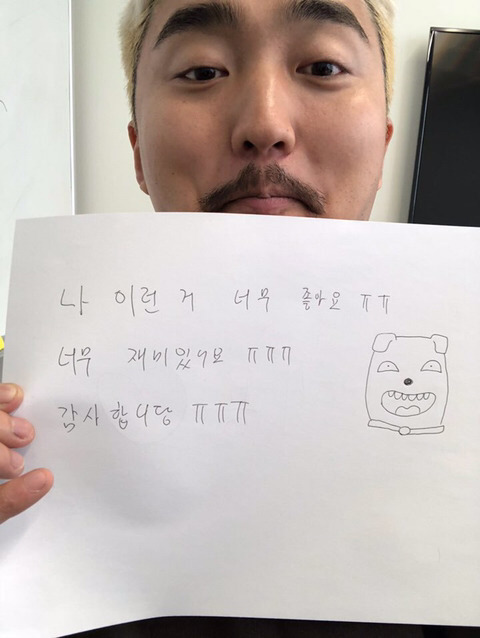 나 이런 거 너무 좋아요 ㅠㅠ
너무 재미있어요 ㅠㅠㅠ
감사합니당 ㅠㅠㅠ